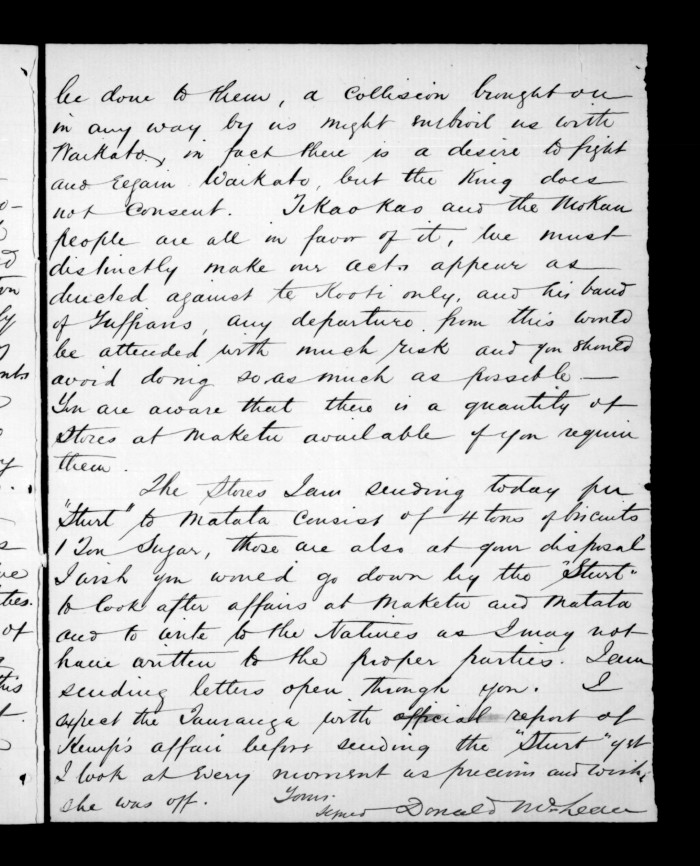 be done to them, a collision brought on
in any way by us might embroil us with
Waikato, in fact there is a desire to fight
and regain Waikato, but the King does
not consent. Tikaokao and the Mokau
people are all in favor of it, we must
distinctly make our acts appear as
directed against te Kooti only, and his band
of Ruffians, any departure from this would
be attended with much risk and you should
avoid doing so as much as possible —
You are aware that there is a quantity of
Stores at Maketu available if you require
them.
The Stores I am sending today per
"Sturt" to Matata consist of 4 tons of biscuits
1 Ton Sugar, those are also at your disposal
I wish you would go down by the "Sturt"
to look after affairs at Maketu and Matata
and to write to the Natives as I may not
have written to the proper parties. I am
sending letters open through you. I
expect the Tauranga with official report of
Kemp's affair before sending the "Sturt" yet
I look at every moment as precious and wish
she was off. Yours.
signed Donald McLean